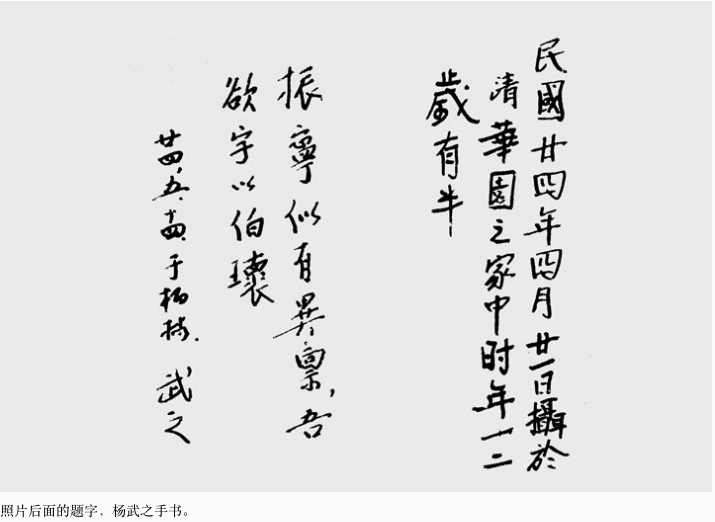 民國廿四年四月廿一日攝於
清華園之家中时年一二
歲有半
振寧似有異禀，吾
欲字以伯瓌
廿四、五、十四、于柏林、武之
照片后面的题字，杨武之手书。